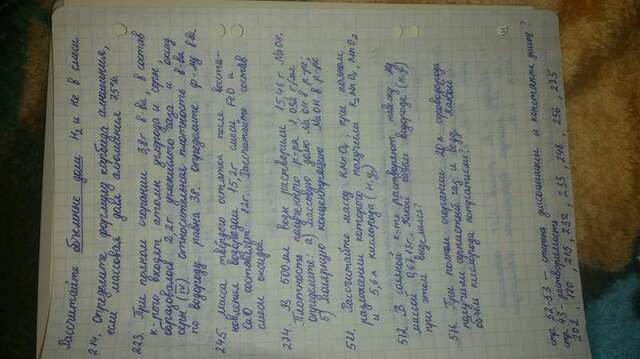 Рассчитайте объемные доли H₂ и не в смеси
214. Определите формулу карбида алюминия,
если массовая доля алюминия 75%.
223. При полном сгорании 3,8 г в-ва, в состав
к-рого входят атомы углерода и серы
образовалось 2,2 г углекислого газа и оксид
серы (IV). Относительная плотность в-ва
по водороду равна 38. Определите ф-лу в-ва
245. Масса твердого остатка после восста-
новления водородом 15,2 г смеси FeO и
CaO составляет 12 г. Рассчитайте состав
смеси оксидов.
274. В 500 мл воды растворили 15,48 г NaOH.
Плотность полученного р-ра 1,092 г/мл
Определите: а) массовую долю NaOH в р-ре;
б) молярную концентрацию NaOH в р-ре
511. Рассчитайте массу KMnO₄, при полном
разложении которого получили K₂MnO₄, MnO₂
и 5,6 л кислорода (н.у)
512. В соляной к-те растворяют навеску Mg
массой 9,6 г. Какой объем водорода (н.у)
при этом выделился?
516. При полном сгорании 20 л сероводорода
получили сернистый газ и воду. Какой
объем кислорода потратили?
стр. 52-53 — степень диссоциации и константа диссоц?
стр. 43 - растворимость
202, 210, 213, 232, 233, 248, 256, 295